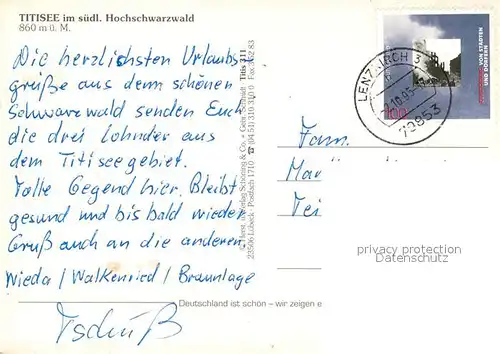 TITISEE im südl. Hochschwarzwald
860 m ü. M.
Die herzlichsten Urlaubs
grüße aus dem schönen
Schwarzwald senden Euch
die drei Lohnder aus
dem Titiseegebiet.
Tolle Gegend hier. Bleibt
gesund und bis bald wieder
Gruß auch an die anderen
Wieda / Walkenried / Braunlage
Tschüß
Schöning & Co. + Gebr. Schmidt Titis 311
23506 Lübeck Postfach 1710
Deutschland ist schön – wir zeigen e
LENZKIRCH 3
79853
100
VON STÄDTEN
UND DÖRFERN
Fam.
Mar
Tei
privacy protection
Datenschutz